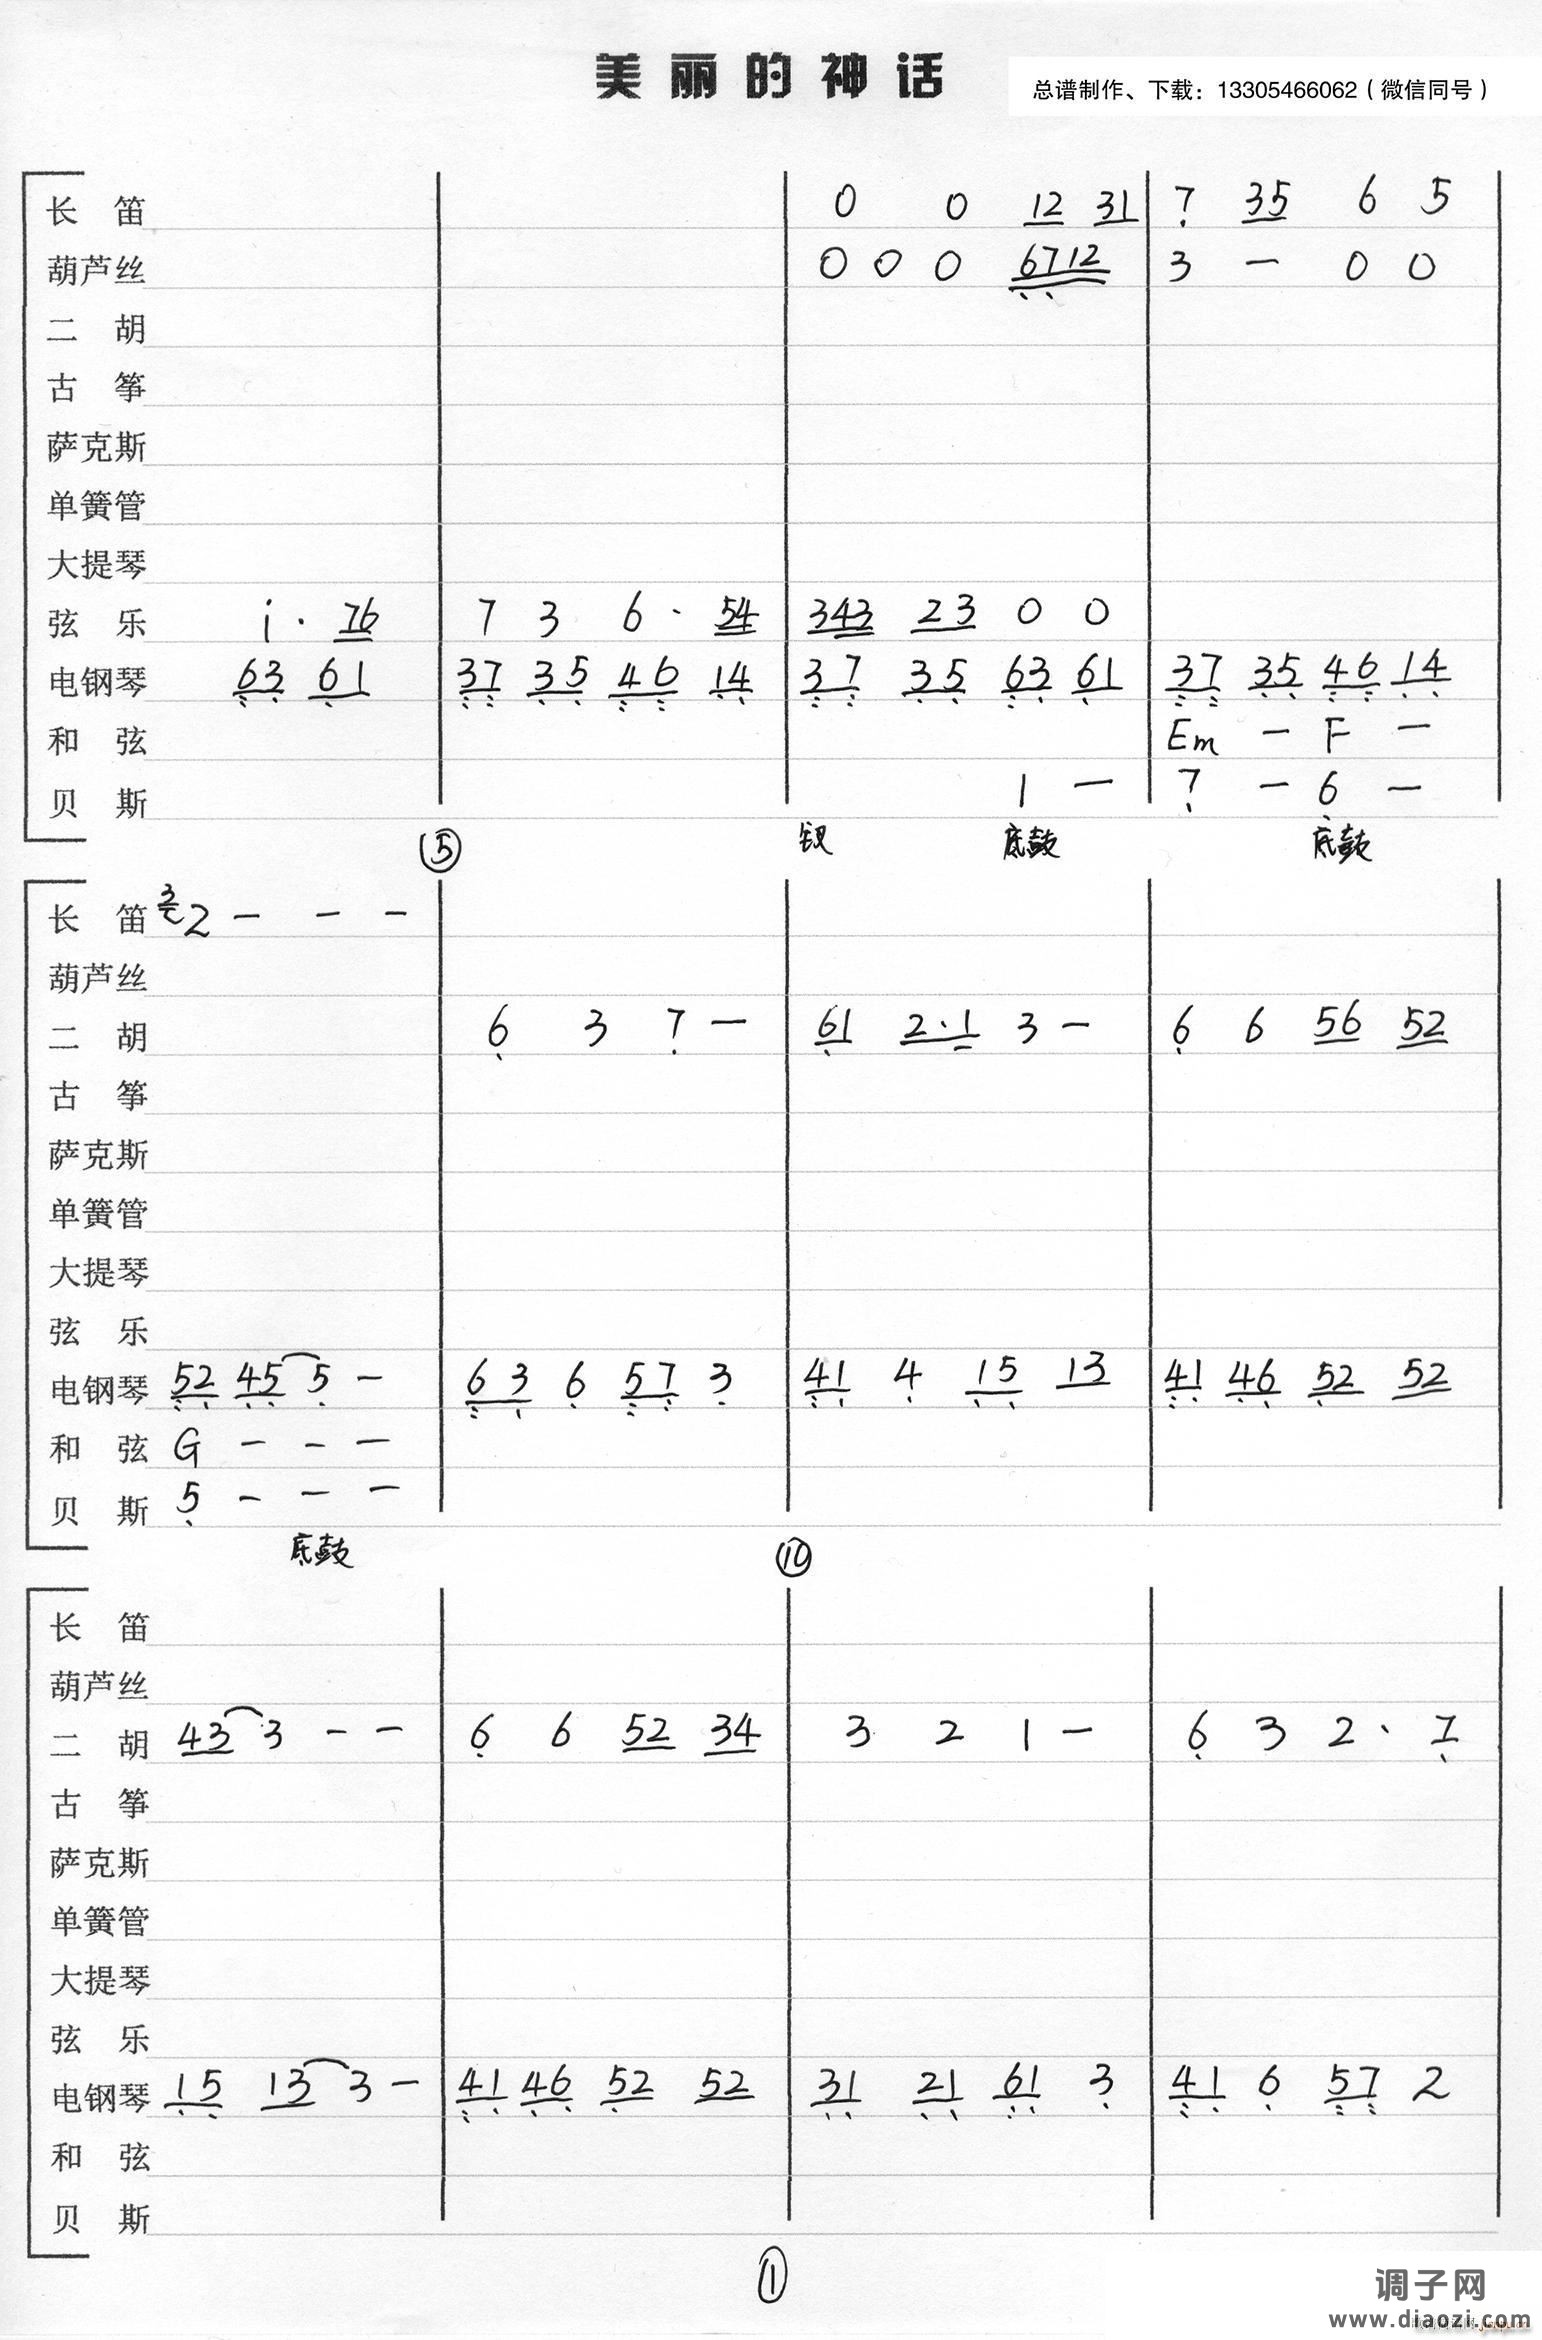 美丽的神话
总谱制作、下载：13305466062（微信同号）
长 笛 0 0 12 31 7 35 6 5
葫芦丝 0 0 0 6712 3 — 0 0
二 胡
古 筝
萨克斯
单簧管
大提琴
弦 乐 i · 76 7 3 6 · 54 343 23 0 0
电钢琴 63 61 37 35 46 14 37 35 63 61 37 35 46 14
和 弦 Em — F —
贝 斯 1 — 7 — 6 —
⑤ 钗 底鼓 底鼓
长 笛 3 2 — — —
葫芦丝
二 胡 6 3 7 — 61 2·1 3 — 6 6 56 52
古 筝
萨克斯
单簧管
大提琴
弦 乐
电钢琴 52 45 5 — 63 6 57 3 41 4 15 13 41 46 52 52
和 弦 G — — —
贝 斯 5 — — —
底鼓 ⑩
长 笛
葫芦丝
二 胡 43 3 — — 6 6 52 34 3 2 1 — 6 3 2 · 7
古 筝
萨克斯
单簧管
大提琴
弦 乐
电钢琴 15 13 3 — 41 46 52 52 31 21 61 3 41 6 57 2
和 弦
贝 斯
①
调子网
www.diaozi.com